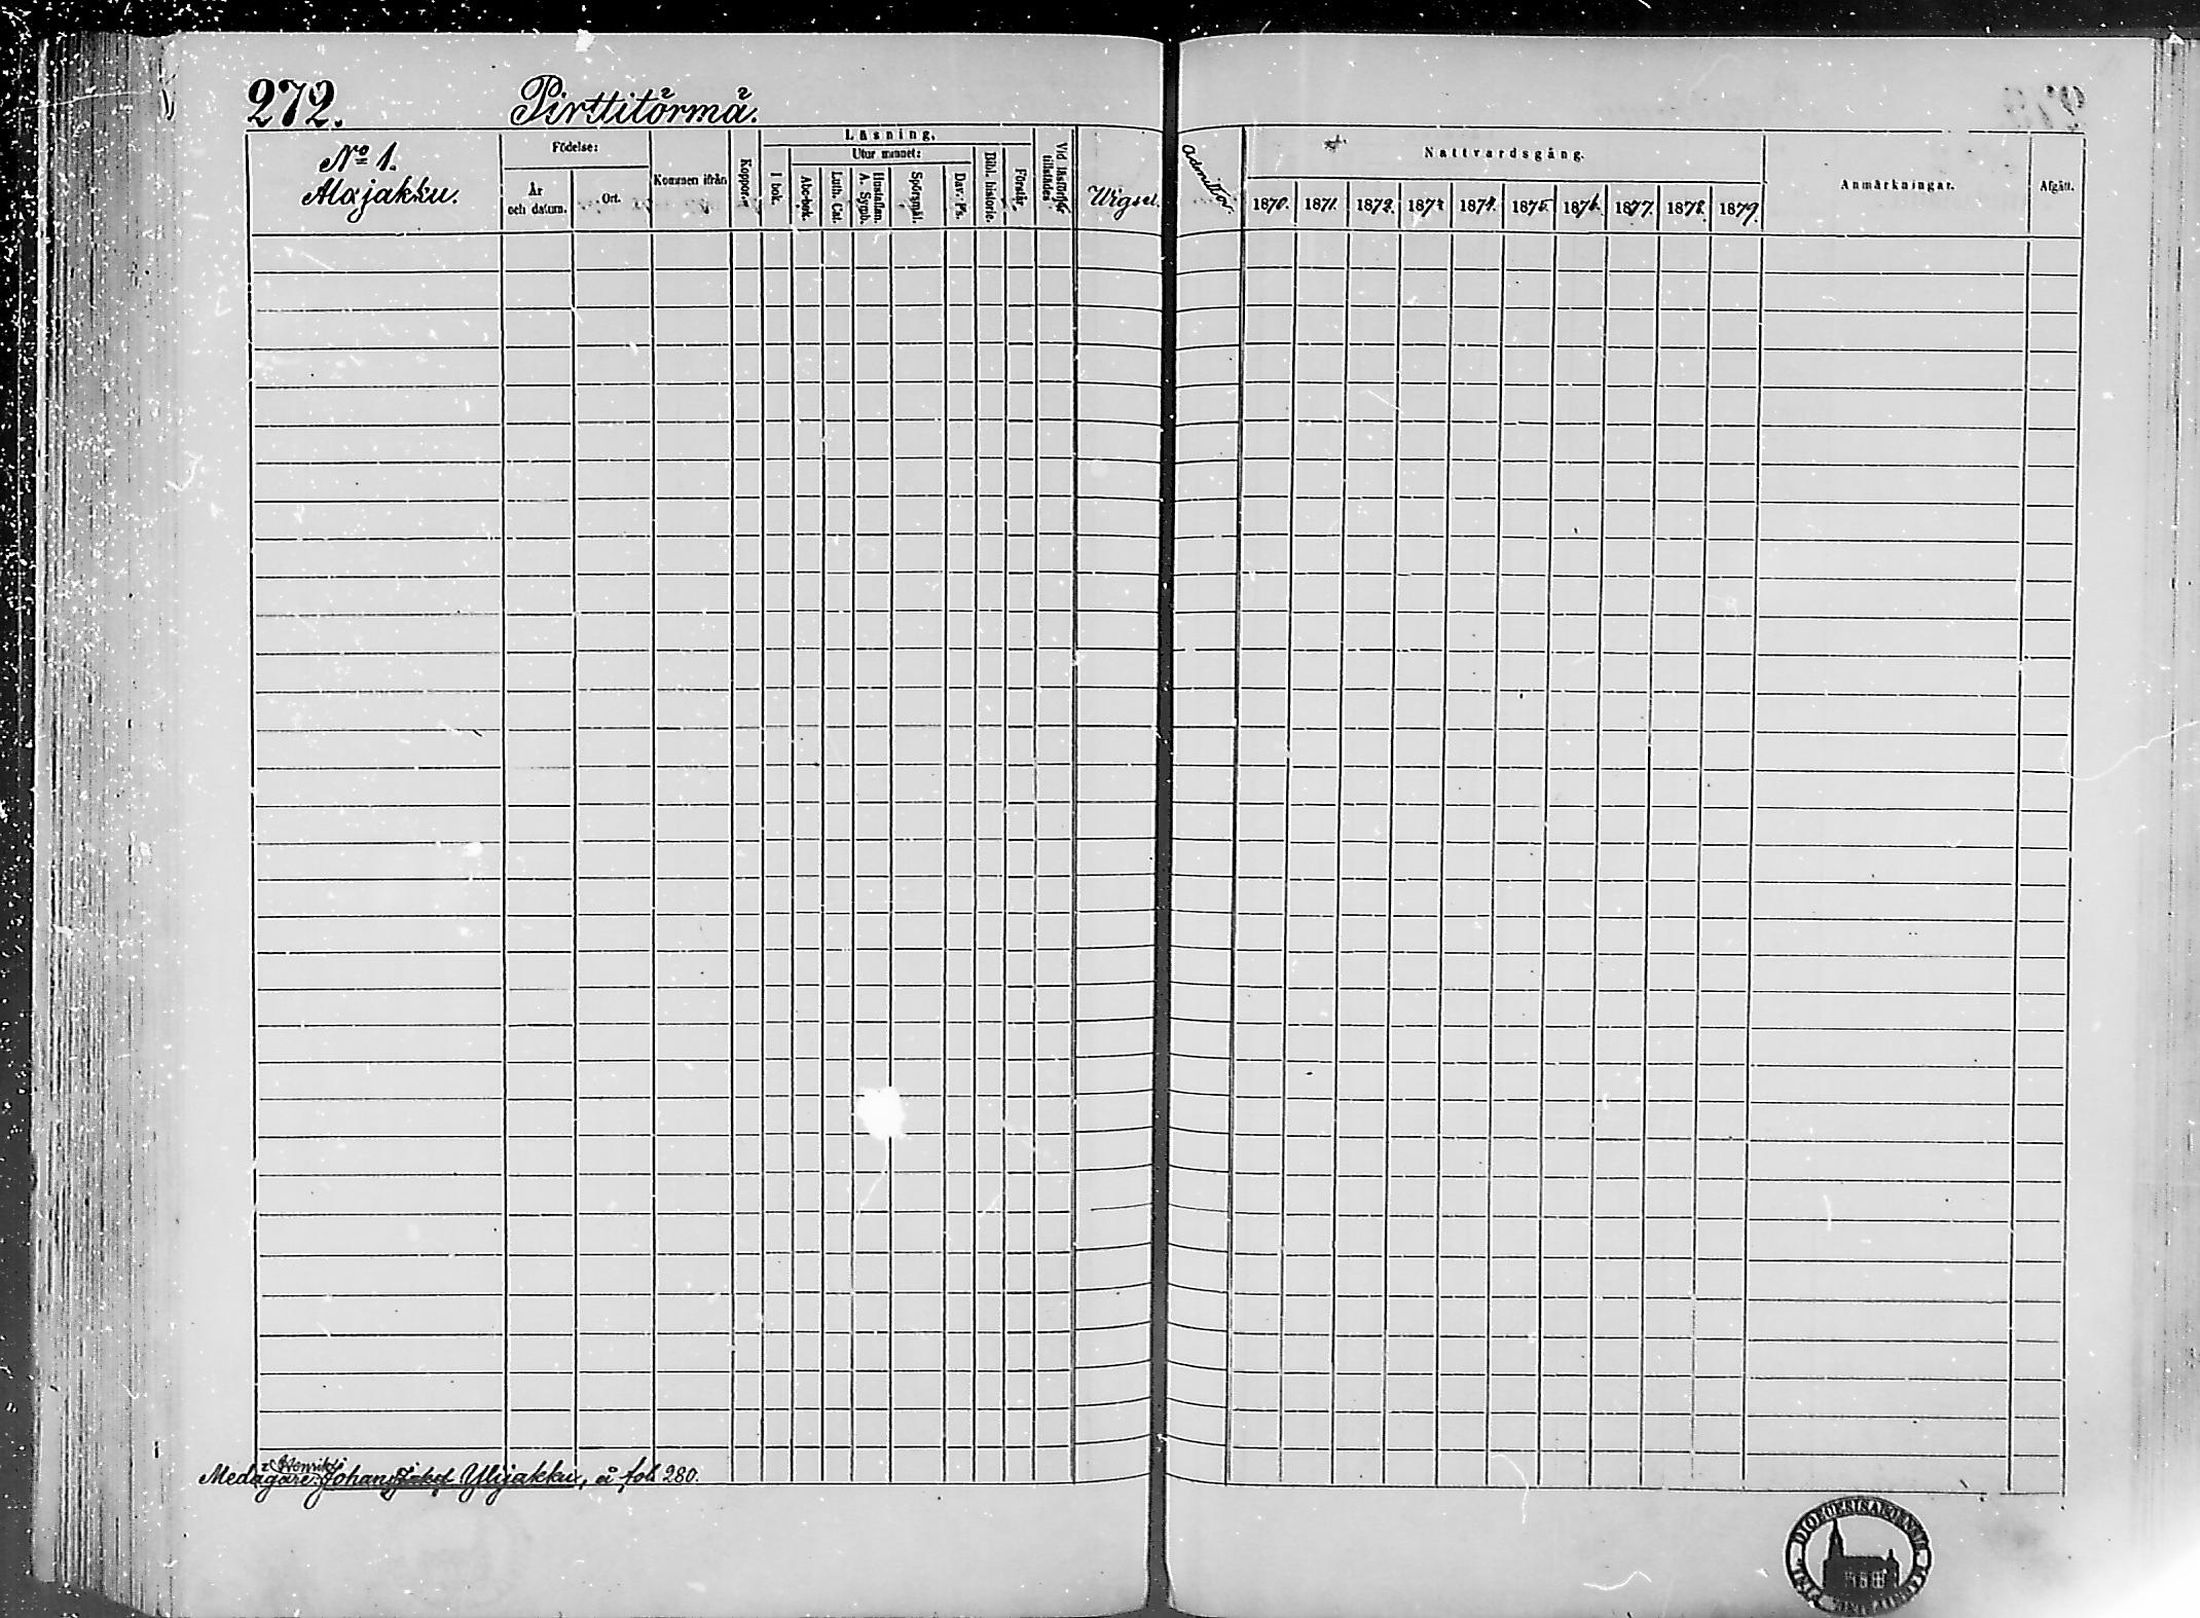 272. Pirttitörmä.
No 1.
Alajakku.
Födelse:
År
och datum.
Ort.
Kommen ifrån
Koppor.
Läsning.
I bok.
Utur minnet:
Abc-bok.
Luth. Cat.
Hustaflan.
A. Symb.
Spörsmål.
Dav. Ps.
Bibl. historie.
Förstår.
Vid läsförhör
tillstädes
Wigsel.
Admitter.
Nattvardsgång.
1870. 1871. 1872. 1873 1874. 1875. 1876. 1877. 1878. 1879.
Anmärkningar.
Afgått.
Henrik
Medägare: Johan Ylijakku, å fol. 280.